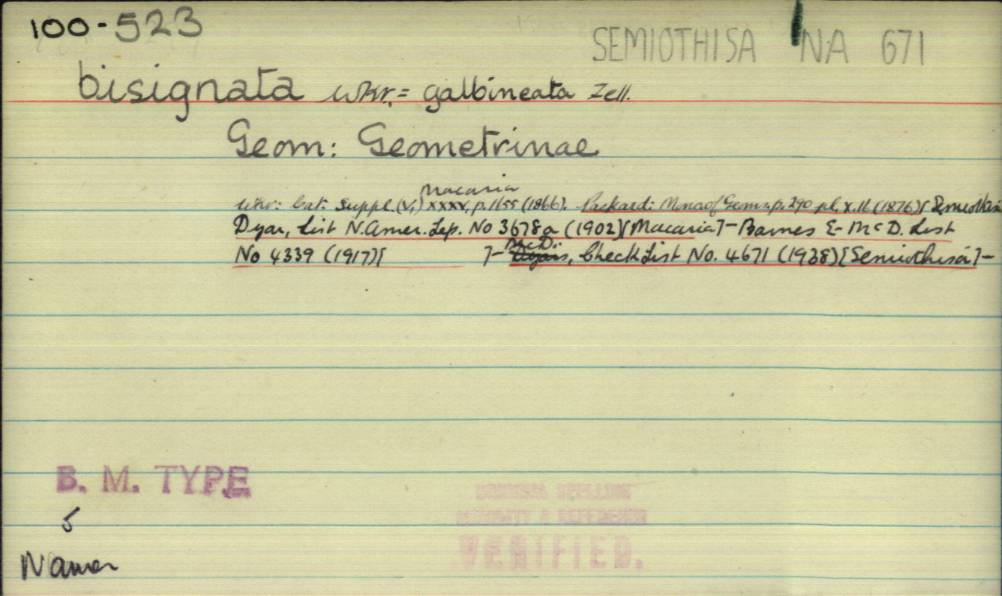 100-523
SEMIOTHISA NA 671
bisignata Wkr. = galbineata Zell.
Geom: Geometrinae
Macaria
Wkr: Cat: Suppl. (V,) xxxv, p. 1655 (1866). Packard: Mono of Geom. p. 290 pl. x. 11 (1876) [Semiothisa
Dyar, List N. Amer. Lep. No 3678a (1902) [Macaria] - Barnes & McD. List
No 4339 (1917) [ ] - McD. Dyar, Check List No. 4671 (1938) [Semiothisa] -
B. M. TYPE
5
N Amer
SPELLING
& REFERENCE
VERIFIED.